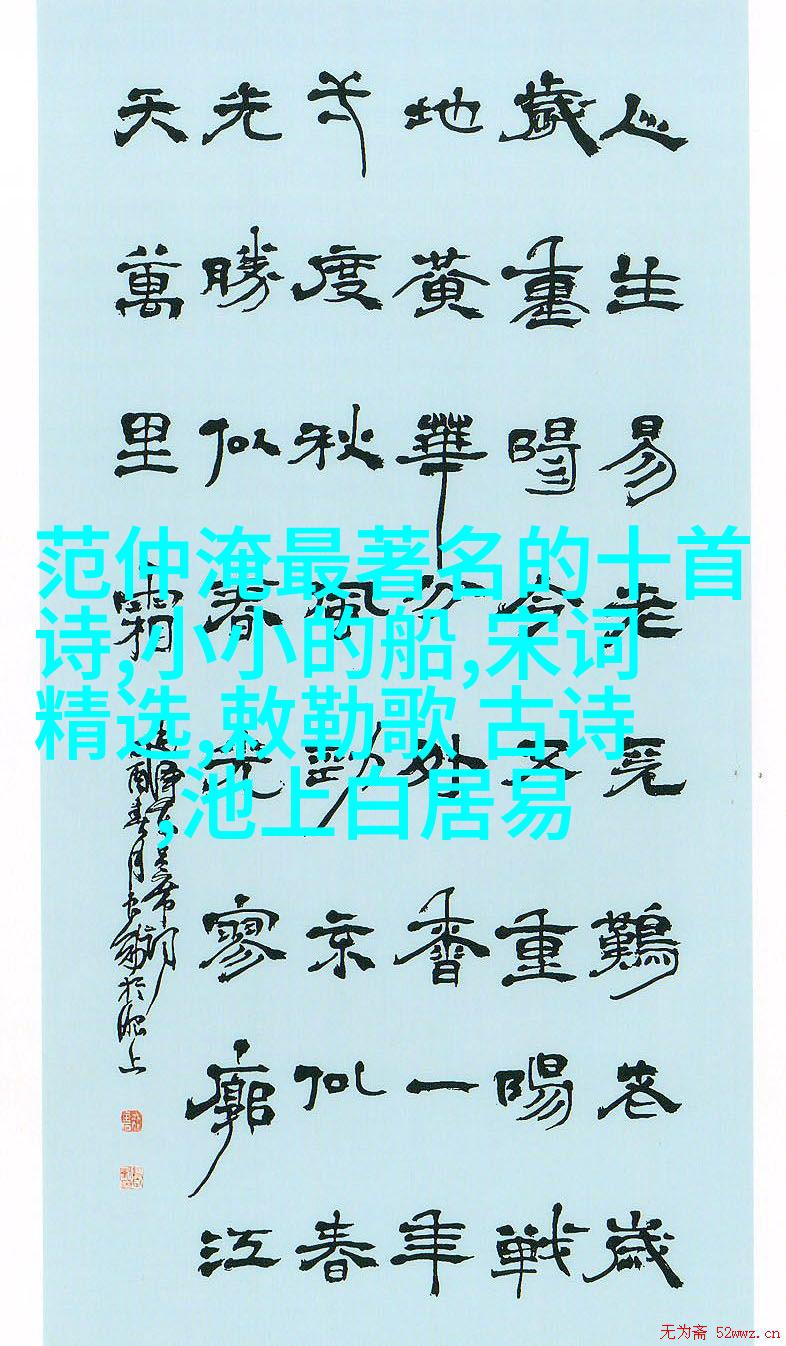 人生易老天難老歲
歲重陽今又重陽戰
地黃華分外香一年
度秋風勁似春
光勝似春光寥廓江
天萬里霜
范仲淹最著名的十首
诗,小小的船,宋词
精选,敕勒歌 古诗
,池上白居易
无为斋 52wwz.cn